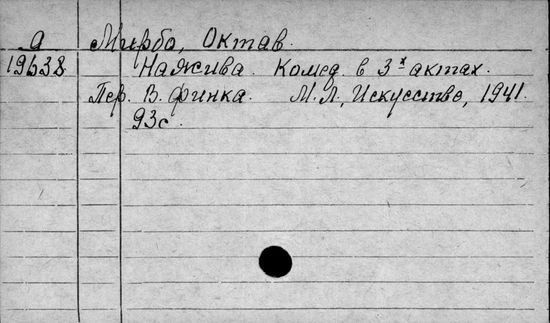 а Мирбо, Октав.
19638 Нажива. Комед. в 3х актах.
Пер. В. Финка. М.Л., Искусство, 1941.
93с.